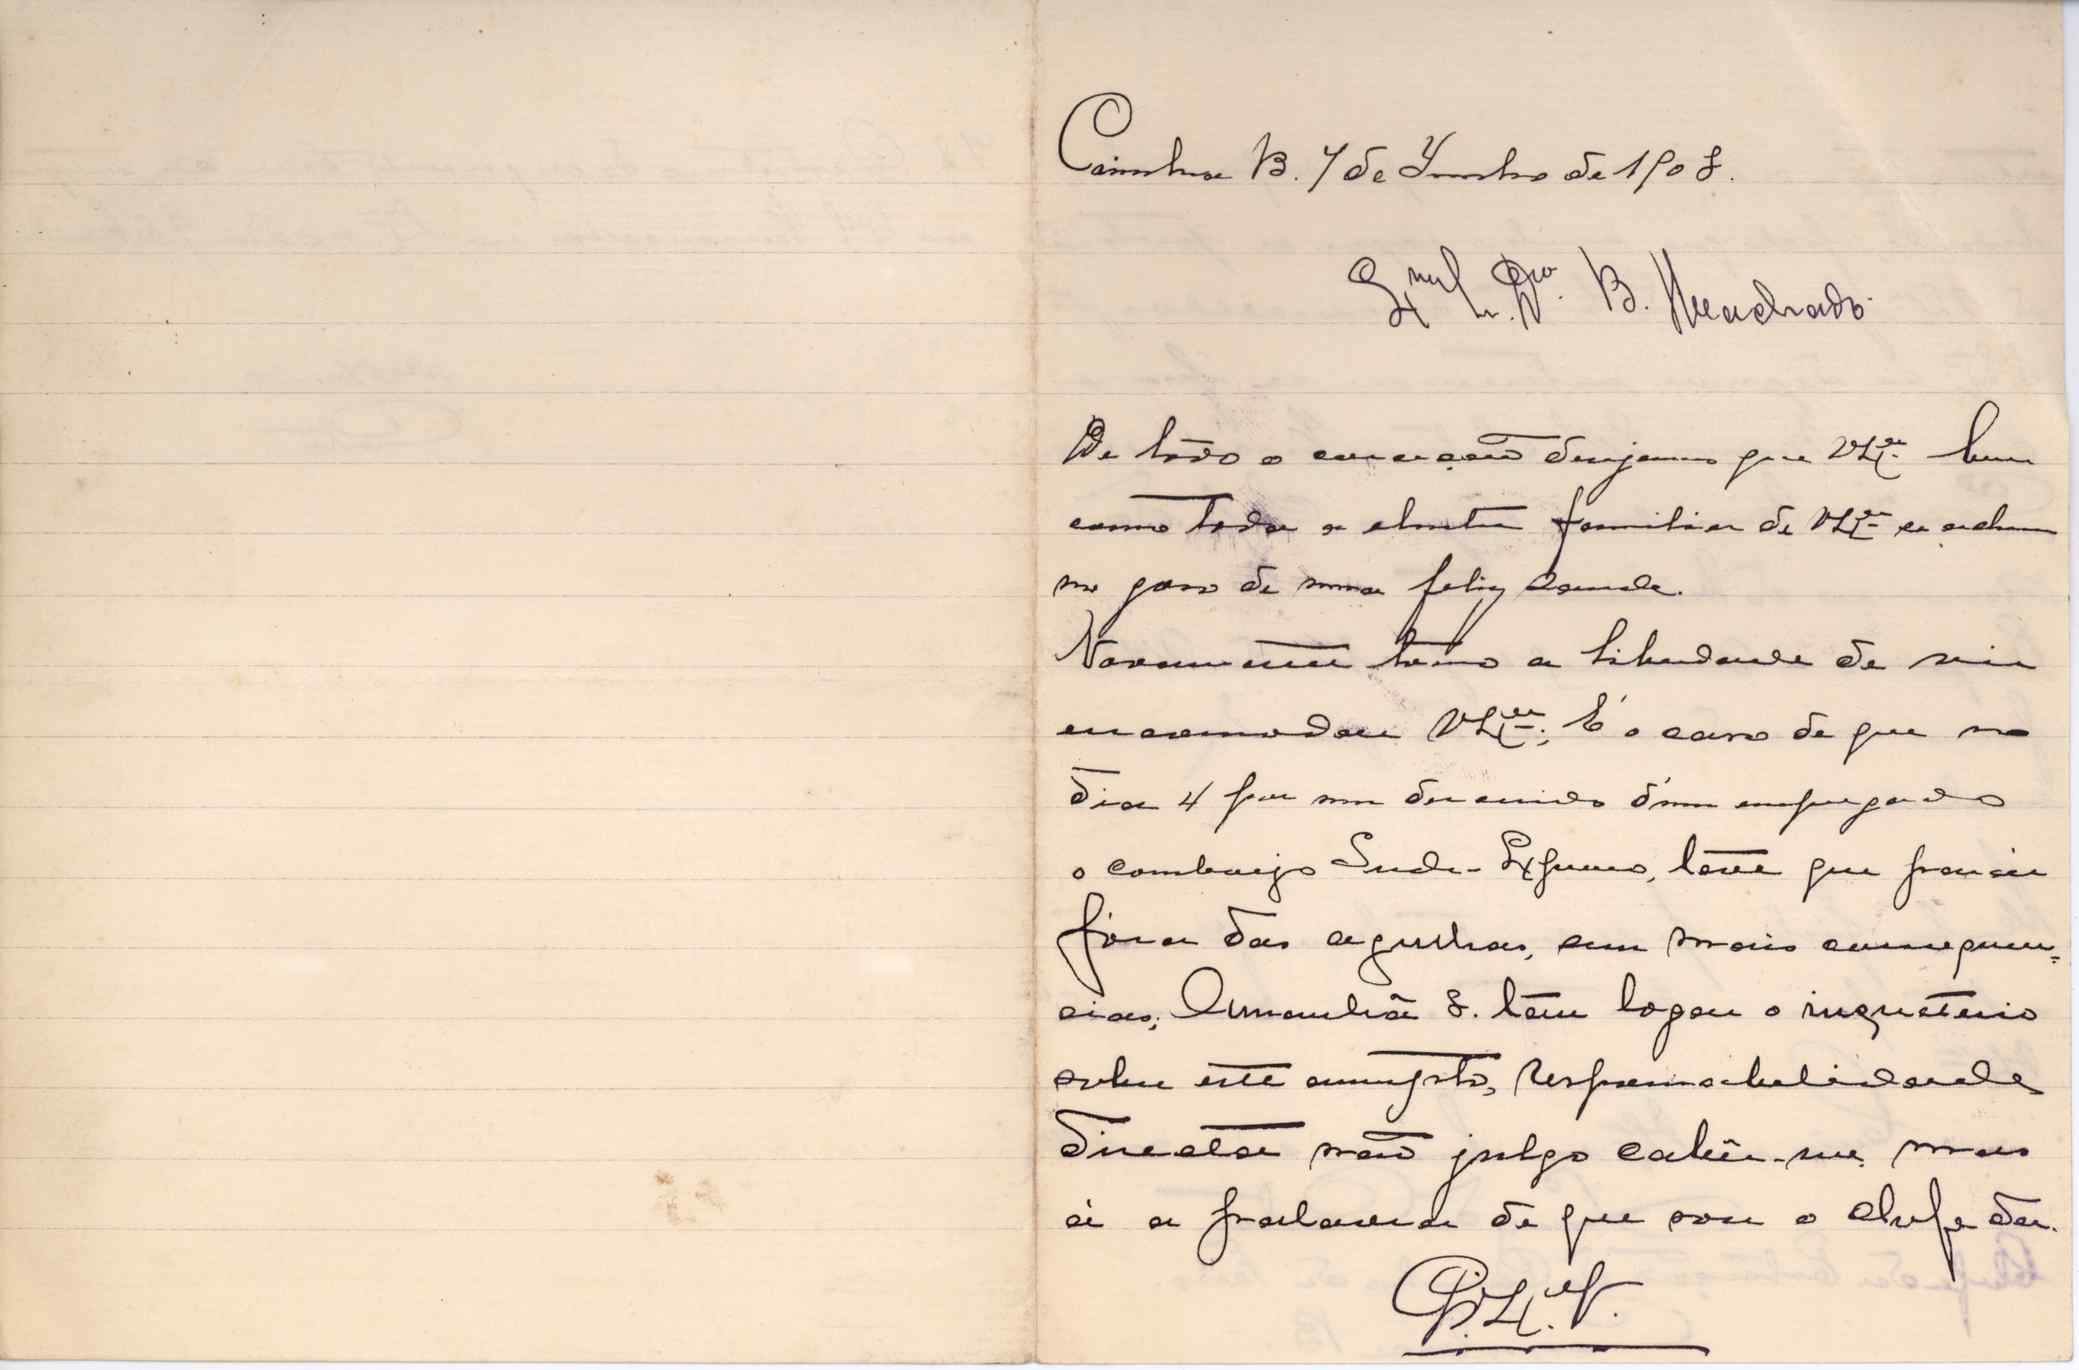 Coimbra B. 7 de Junho de 1908.
Exmo Sr. Dr. B. Machado.
De todo o coração desejamos que V Exª bem
como toda a illustre familia de V Exª se achem
no goso de uma feliz saude.
Novamente tomo a liberdade de vir
encomodar V Exª; É o caso de que no
dia 4 por um descuido d'um empregado
o comboijo Sud-Expresso, teve que parar
fóra das agulhas, sem mais consequen=
cias; Amanhã 8. têm logar o inquéterio
sobre este assumpto, responsabelidade
directa não julgo cabêr-me, mas
á a palavra de que sou o chefe da.
V.